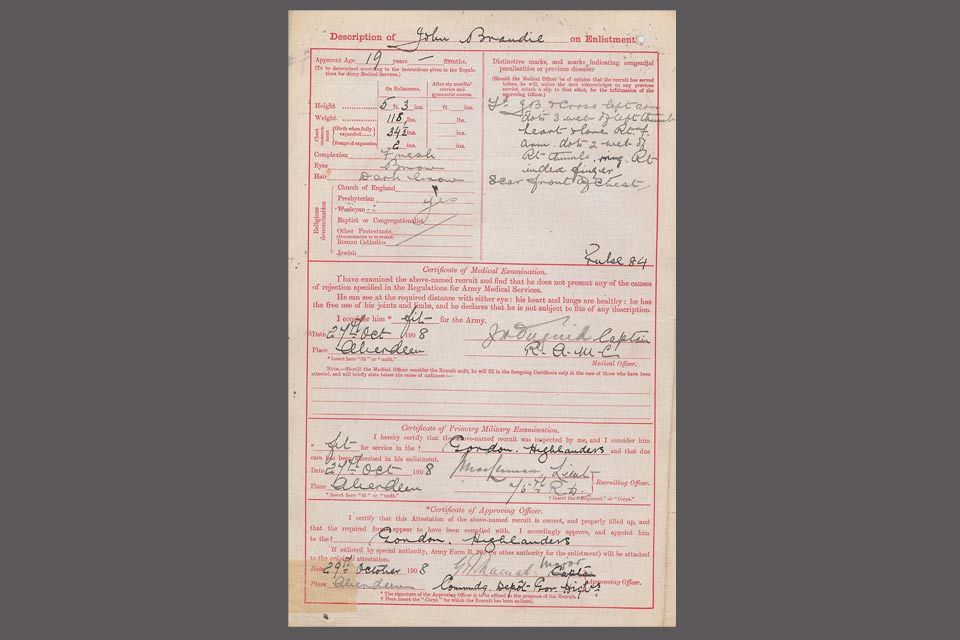 Description of John Brandie on Enlistment.
Apparent Age 19 years — months.
(To be determined according to the instructions given in the Regula-
tions for Army Medical Services.)
On Enlistment.
After six months'
service and
gymnastic course.
Height 5 ft. 3 ins. ft. ins.
Weight 118 lbs. lbs.
Chest measure-
ment
Girth when fully
expanded 34½ ins. ins.
Range of expansion 2 ins. ins.
Complexion Fresh
Eyes Brown
Hair Dark brown
Religious
denomination
Church of England
Presbyterian yes
Wesleyan
Baptist or Congregationalist
Other Protestants
(Denomination to be stated)
Roman Catholics
Jewish
Distinctive marks, and marks indicating congenital
peculiarities or previous disease
(Should the Medical Officer be of opinion that the recruit has served
before, he will, unless the man acknowledges to any previous
service, attach a slip to that effect, for the information of the
approving Officer.)
J.B. & Cross left arm
dots 3 web of left thumb
heart & love Rt. f.
arm. dots 2 web of
Rt thumb, ring Rt
index finger
Scar front of chest
Pulse 84
Certificate of Medical Examination.
I have examined the above-named recruit and find that he does not present any of the causes
of rejection specified in the Regulations for Army Medical Services.
He can see at the required distance with either eye: his heart and lungs are healthy: he has
the free use of his joints and limbs, and he declares that he is not subject to fits of any description.
I consider him * fit for the Army.
Date 24th Oct 1908 Captain
Place Aberdeen R.A.M.C
Medical Officer.
* Insert here "fit" or "unfit."
NOTE.—Should the Medical Officer consider the Recruit unfit, he will fill in the foregoing Certificate only in the case of those who have been
attested, and will briefly state below the cause of unfitness:—
Certificate of Primary Military Examination.
I hereby certify that the above-named recruit was inspected by me, and I consider him
* fit for service in the † Gordon Highlanders and that due
care has been exercised in his enlistment.
Date 24th Oct 1908 Lieut
Recruiting Officer.
Place Aberdeen
* Insert here "fit" or "unfit." † Insert the "Regiment" or "Corps."
*Certificate of Approving Officer.
I certify that this Attestation of the above-named recruit is correct, and properly filled up, and
that the required forms appear to have been complied with. I accordingly approve, and appoint him
to the † Gordon Highlanders
If enlisted by special authority, Army Form B. (or other authority for the enlistment) will be attached
to the original attestation.
Date 29th October 1908 Major
Captain
Approving Officer.
Place Aberdeen Commdg. Depôt Gor. Highrs
* The signature of the Approving Officer is to be affixed in the presence of the Recruit.
† Here insert the "Corps" for which the Recruit has been enlisted.